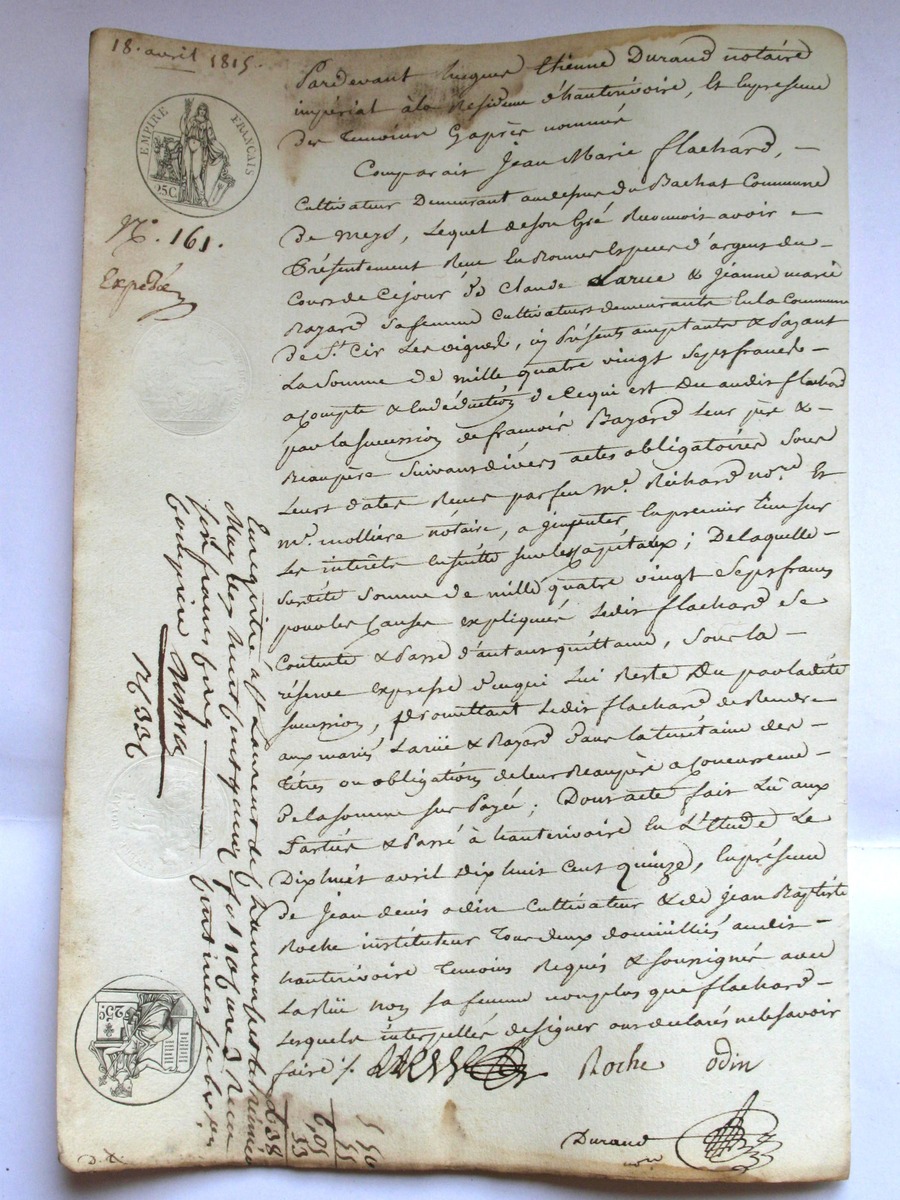 18. avril 1815.
EMPIRE FRANÇAIS
25C
N.º 161.
Expedié
Pardevant Jacques Etienne Durand notaire
impérial à la Residence d'hauterivoire, Et En presence
des Temoins Cy après nommés
Comparait Jean Marie flachard, –
Cultivateur Demeurant au Bachat Commune
De meys, Lequel de son Gré Reconnoit avoir –
Présentement Recu En Bonnes Especes d'argent du –
Cours de Ce jour De Claude Larue & Jeanne marie
Bazard Sa femme Cultivateurs demeurants En la Commune
De St. Cir Les vignes, icy Présents acceptants & Payant
La Somme De mille quatre vingt Sept francs –
a Compte & En déduction de Ce qui est Du audit flachard
par la Succession de francois Bazard Leur père & –
Beaupère Suivant divers actes obligatoires Sous
Leurs dates Recus par feu Me. Réchard nore. Et
Me. mollière notaire, a imputer En premier Lieu sur
Les intérêts Ensuitte sur les Capitaux; De laquelle –
Susdite Somme de mille quatre vingt Sept francs
pour les Causes expliquées Ledit flachard Se
Contente & Passe d'autant quittance, Sous la –
réserve expresse de ce qui Lui Reste Du par la dite
Succession, promettant Ledit flachard de Rendre
aux mariés Larüe & Bazard des
Titres ou obligations de leur Beaupère a Concurrence
De la somme sus Payée; Dont acte fait Lû aux
Parties & Passé à hauterivoire En L'Etude Le
Dix huit avril Dix huit Cent quinze, En présence
de Jean denis odin Cultivateur & de Jean Baptiste
Roche instituteur Tous deux domiciliés audit –
hauterivoire Temoins Requis & Soussignés avec
Larüe non sa femme non plus que flachard –
Lesquels interpellés de signer ont déclarés ne le savoir
faire /.
Roche odin
Durand
nore
Enregistré a St. Laurent de Chamousset le
mil huit cent quinze fo. 110 Recu
francs
centimes
25C
D. t.